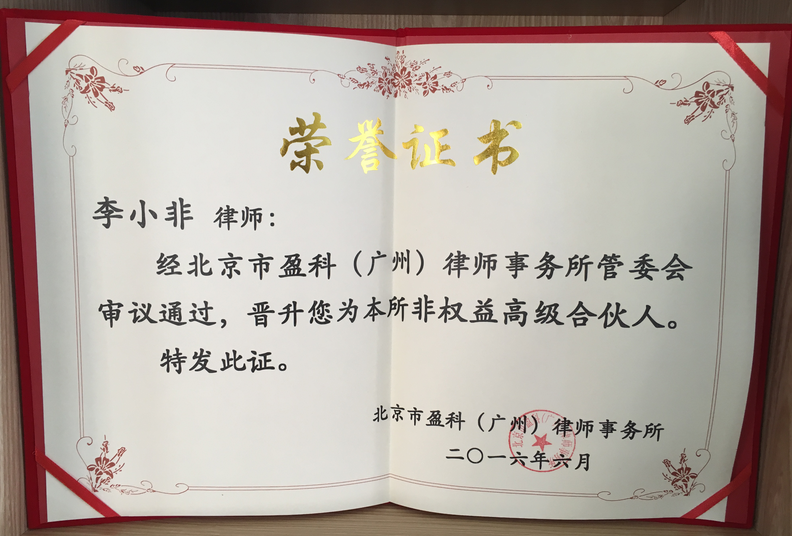 荣誉证书
李小非 律师：
经北京市盈科（广州）律师事务所管委会
审议通过，晋升您为本所非权益高级合伙人。
特发此证。
北京市盈科（广州）律师事务所
二〇一六年六月